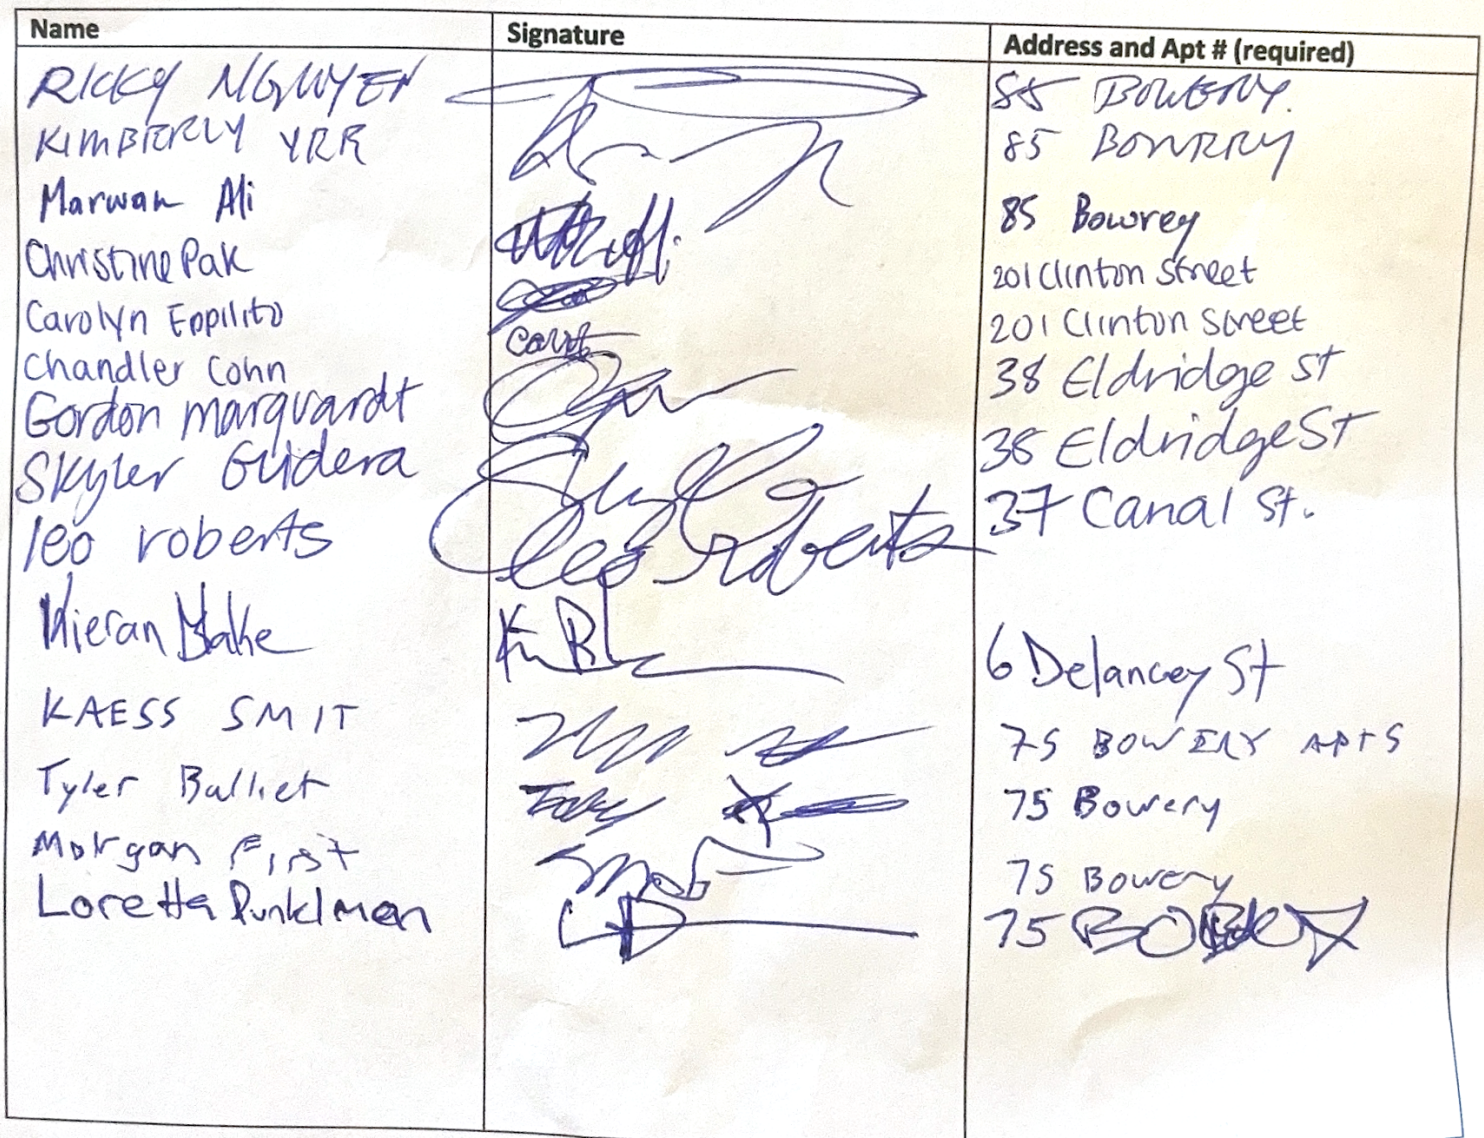 Name Signature Address and Apt # (required)
RICKY NGUYEN 85 BOWERY.
KIMBERLY YRR 85 BOWRRY
Marwan Ali 85 Bowrey
Christine Pak 201 Clinton Street
Carolyn Eppilito 201 Clinton Street
Chandler Cohn 38 Eldridge St
Gordon Marquardt 38 Eldridge St
Skyler Guidera 37 Canal St.
leo roberts Leo Roberts
Kieran Blake 6 Delancey St
KAESS SMIT 75 BOWERY APTS
Tyler Balliet 75 Bowery
Morgan First 75 Bowery
Loretta 75